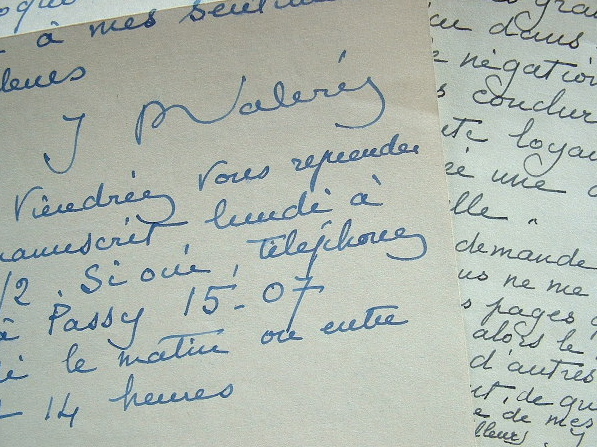 à mes sentim
J M Valéry
Viendriez vous reprendre
manuscrit lundi à
1/2. Si oui, téléphonez
à Passy 15-07
le matin ou entre
14 heures
dans
négation
conclure
loyau
une
lle"
demande
us ne me
pages
alors le
d'autres
de qu
de mes